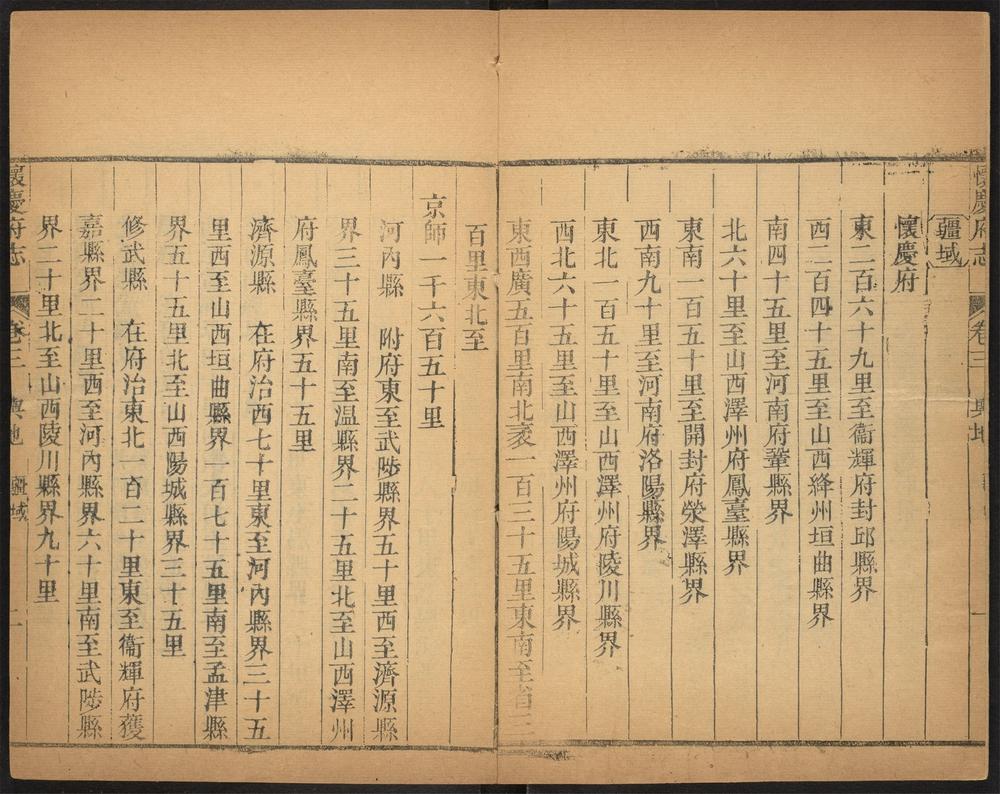 懷慶府志
卷三
輿地
一
疆域
懷慶府
東二百六十九里至衞輝府封邱縣界
西二百四十五里至山西絳州垣曲縣界
南四十五里至河南府鞏縣界
北六十里至山西澤州府鳳臺縣界
東南一百五十里至開封府滎澤縣界
西南九十里至河南府洛陽縣界
東北一百五十里至山西澤州府陵川縣界
西北六十五里至山西澤州府陽城縣界
東西廣五百里南北袤一百三十五里東南至省三
百里東北至
京師一千六百五十里
河內縣 附府東至武陟縣界五十里西至濟源縣
界三十五里南至温縣界二十五里北至山西澤州
府鳳臺縣界五十五里
濟源縣 在府治西七十里東至河內縣界三十五
里西至山西垣曲縣界一百七十五里南至孟津縣
界五十五里北至山西陽城縣界三十五里
修武縣 在府治東北一百二十里東至衞輝府獲
嘉縣界二十里西至河內縣界六十里南至武陟縣
界二十里北至山西陵川縣界九十里
懷慶府志
卷三
輿地
疆域
二